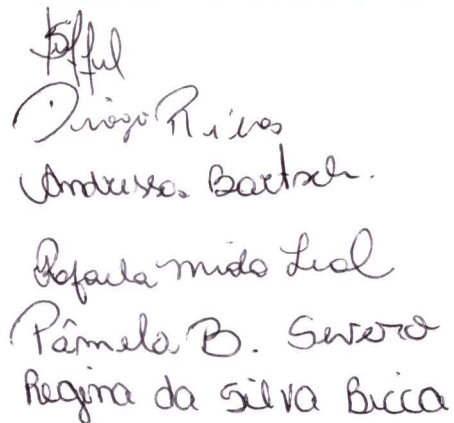 Diogo Ribas
Andressa Bartsch.
Rafaela mido Leal
Pâmela B. Severo
Regina da Silva Bicca